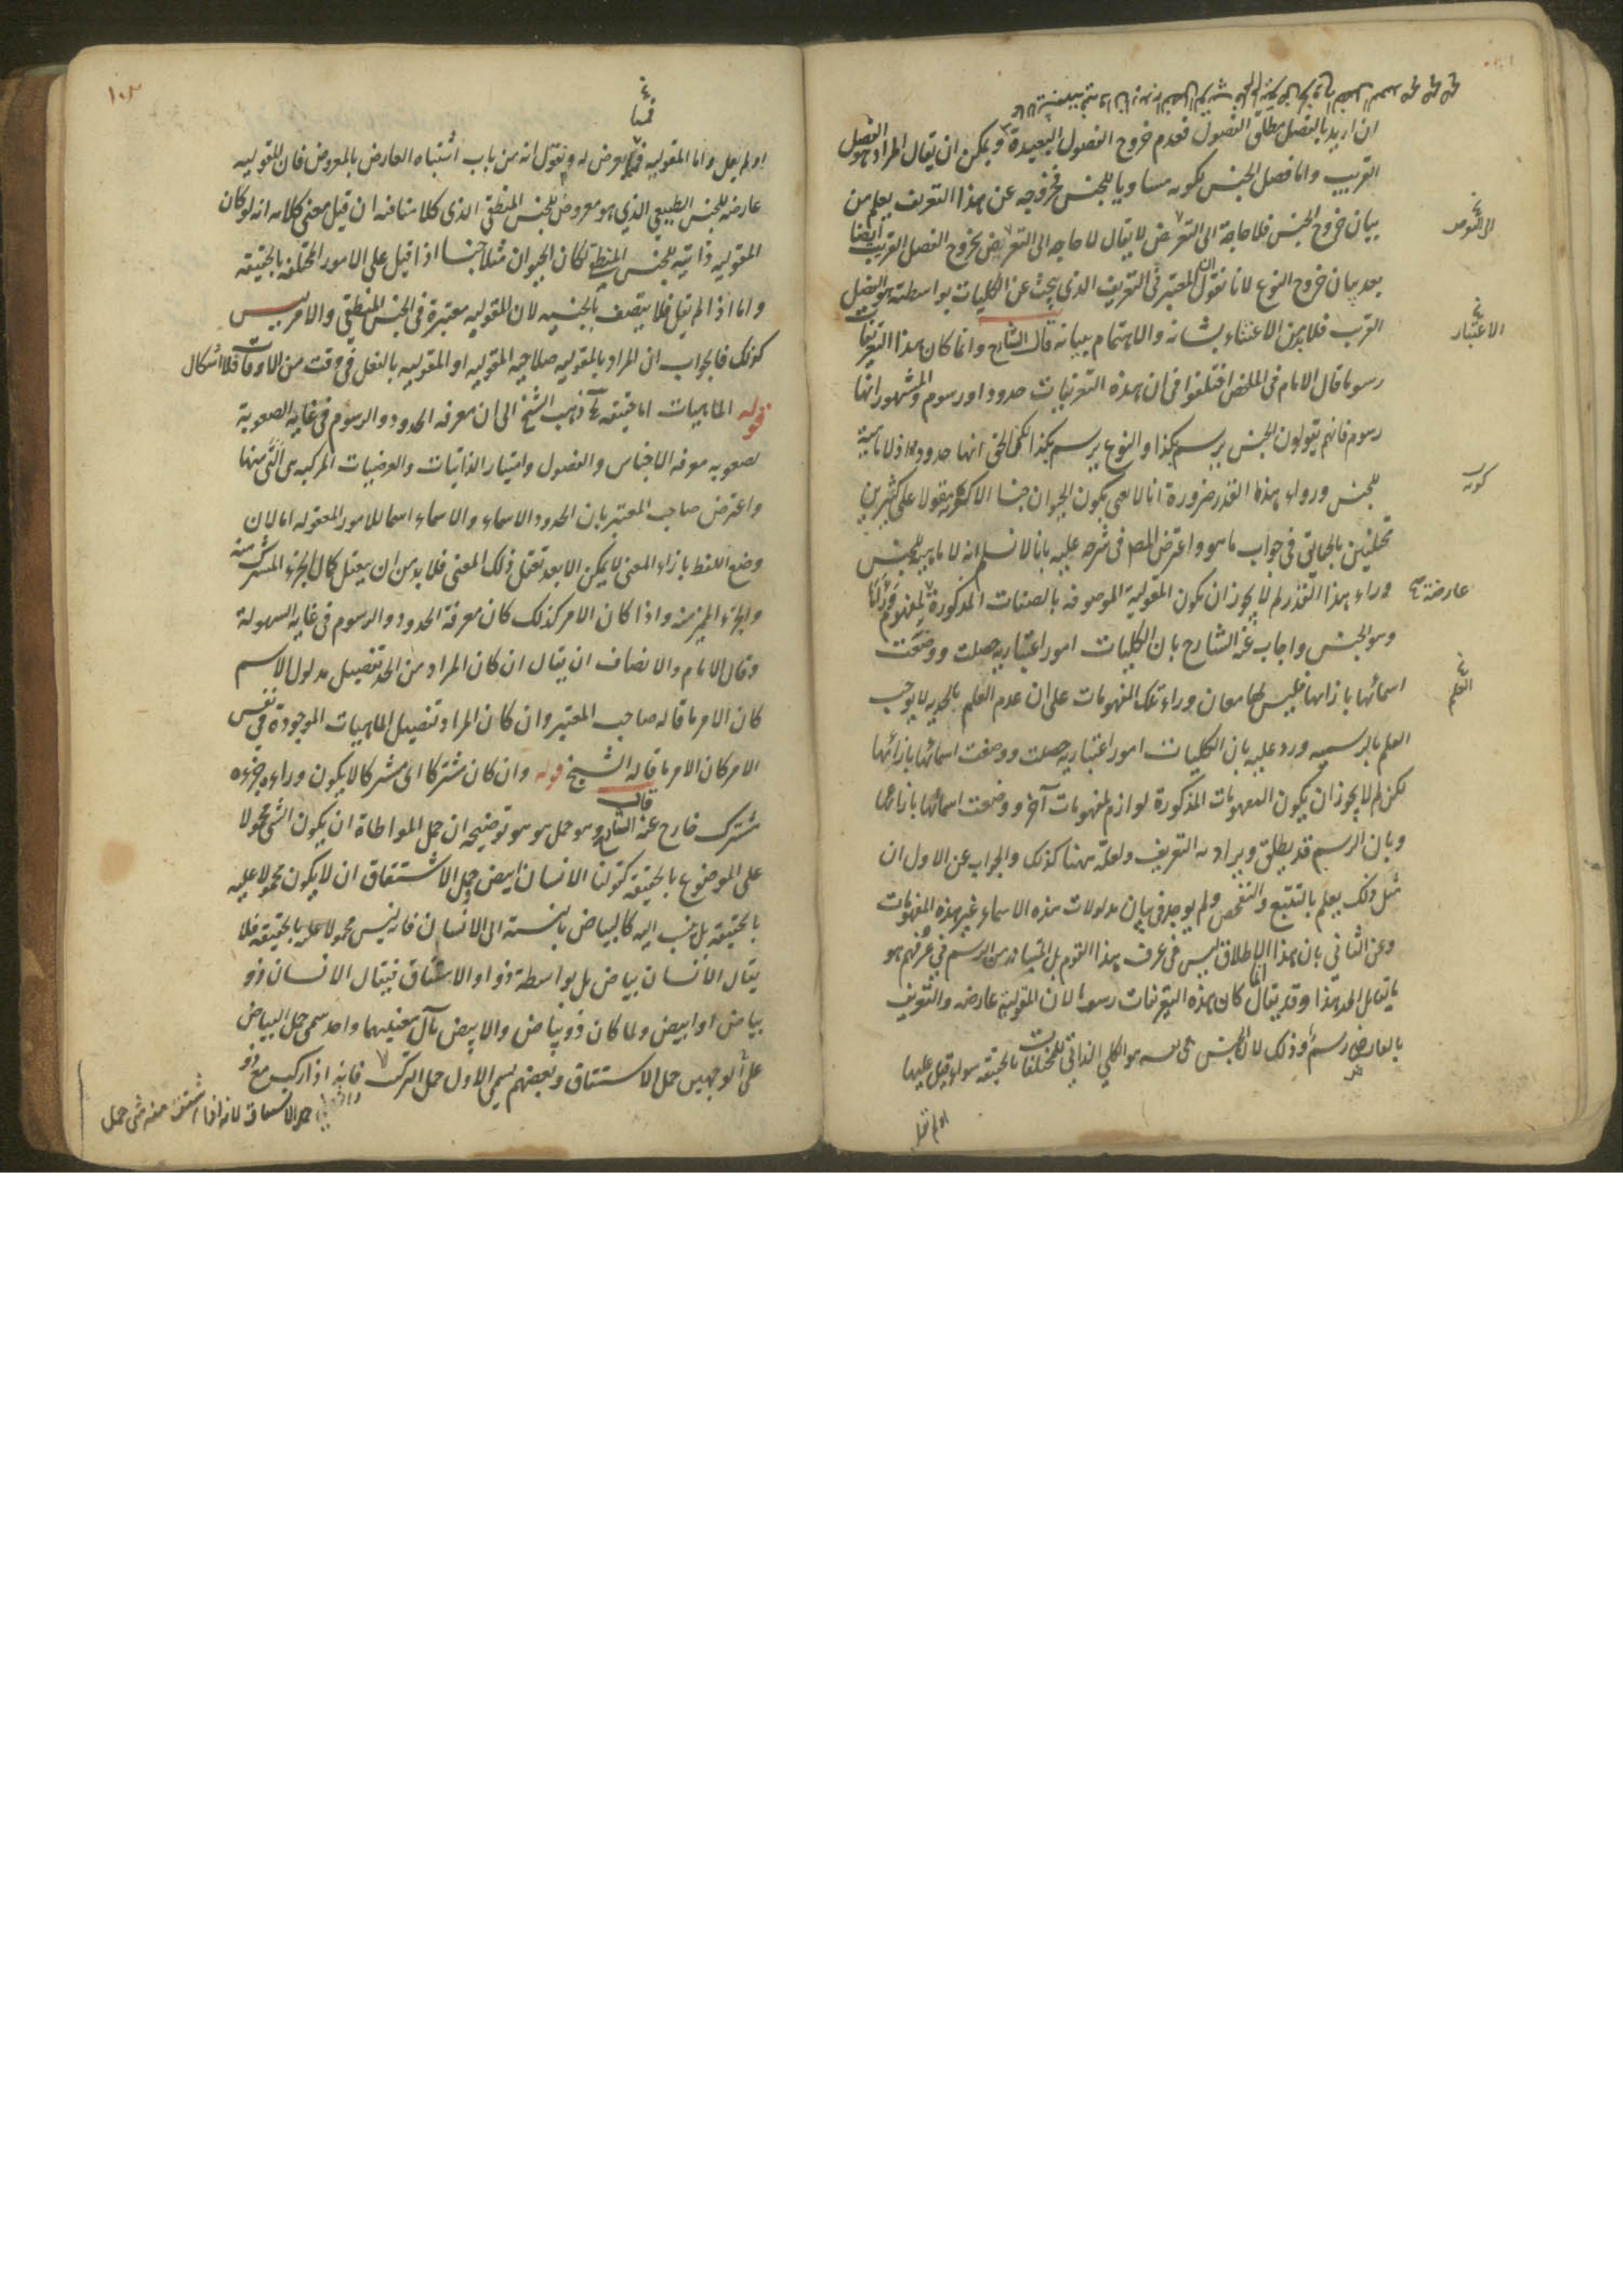 ان اريد بالفصل مطلق الفصول فعدم خروج الفصول البعيدة ويمكن ان يقال المراد هو الفصل
القريب واما فصل الجنس لكونه مساويا للجنس فخروجه عن هذا التعريف يعلم من
بيان خروج الجنس فلا حاجة الى التعرض لا يقال لا حاجة الى التعرض بخروج الفصل القريب ايضا
بعد بيان خروج النوع لانا نقول ان المعتبر في التعريف الذي يبحث عن الكليات بواسطته هو الفصل
القريب فلا بد من الاعتناء بشانه والاهتمام ببيانه قال الشارح وانما كان هذا التعريفات
رسوما قال الامام في الملخص اختلفوا في ان هذه التعريفات حدود او رسوم والمشهور انها
رسوم فانهم يقولون الجنس يرسم بكذا والنوع يرسم بكذا لكن الحق انها حدود اذ لا ماهية
للجنس وراء هذا القدر ضرورة انا لا نعني بكون الحيوان جنسا الا كونه مقولا على كثيرين
مختلفين بالحقائق في جواب ما هو واعترض المص في شرحه عليه بانا لا نسلم انه لا ماهية للجنس
وراء هذا القدر لم لا يجوز ان يكون المقولية الموصوفة بالصفات المذكورة لمفهوم
وهو الجنس واجاب عنه الشارح بان الكليات امور اعتبارية حصلت ووضعت
اسمائها بازائها فليس لها معان وراء تلك المفهومات على ان عدم العلم بالحدية لا يوجب
العلم بالرسمية ورد عليه بان الكليات امور اعتبارية حصلت ووضعت اسمائها بازائها
لكن لم لا يجوز ان يكون المفهومات المذكورة لوازم لمفهومات آخر ووضعت اسمائها بازائها
وبان الرسم قد يطلق ويراد به التعريف ولعله ههنا كذلك والجواب عن الاول ان
مثل ذلك يعلم بالتتبع والتفحص ولم يوجد في بيان مدلولات هذه الاسماء غير هذه المفهومات
وعن الثاني بان هذا الاطلاق ليس في عرف هذا القوم بل المتبادر من الرسم في عرفهم هو
ما يقابل الحد هذا وقد يقال انما كان هذه التعريفات رسوما لان المقولية عارضة والتعريف
بالعارض رسم وذلك لان الجنس في نفسه هو الكلي الذاتي للمختلفات بالحقيقة سواء قيل عليها
او لم يقل
الاعتبار
كونه
عارضة
العلم
١٠٣
او لم يقل واما المقولية يعرض له ونقول انه من باب اشتباه العارض بالمعروض فان المقولية
عارضة للجنس الطبيعي الذي هو معروض للجنس المنطقي الذي كلامنا فيه ان قيل معنى كلامه انه لو كان
المقولية ذاتية للجنس المنطقي لكان الحيوان مثلا جنسا اذا قيل على الامور المختلفة بالحقيقة
واما اذا لم يقل فلا يتصف بالجنسية لان المقولية معتبرة في الجنس المنطقي والامر ليس
كذلك فالجواب ان المراد بالمقولية صلاحية المقولية او المقولية بالفعل في وقت من الاوقات فلا اشكال
قوله الماهيات اما حقيقة ذهب الشيخ الى ان معرفة الحدود والرسوم في غاية الصعوبة
لصعوبة معرفة الاجناس والفصول وامتياز الذاتيات والعرضيات المركبة هي التي منها
واعترض صاحب المعتبر بان الحدود الاسماء والاسماء اسما للامور المعقولة اما لان
وضع اللفظ بازاء المعنى لا يمكن الا بعد تعقل ذلك المعنى فلا بد من ان يعقل كمال الجزء المشترك منه
والجزء المميز منه واذا كان الامر كذلك كان معرفة الحدود والرسوم في غاية السهولة
وقال الامام والانصاف ان يقال ان كان المراد من الحد تفصيل مدلول الاسم
كان الامر ما قاله صاحب المعتبر وان كان المراد تفصيل الماهيات الموجودة في نفس
الامر كان الامر ما قاله الشيخ قوله وان كان مشتركا اي مشتركا لا يكون وراءه جزء
مشترك خارج عنه قال الشارح وهو حمل هو هو توضيحه ان حمل المواطاة ان يكون الشئ محمولا
على الموضوع بالحقيقة كقولنا الانسان ابيض وحمل الاشتقاق ان لا يكون محمولا عليه
بالحقيقة بل ينسب اليه كالبياض بالنسبة الى الانسان فانه ليس محمولا عليه بالحقيقة فلا
يقال الانسان بياض بل بواسطة ذو او الاشتقاق فيقال الانسان ذو
بياض او ابيض ولما كان ذو بياض والابيض مآل معنيهما واحد سمي حمل البياض
على الوجهين حمل الاشتقاق وبعضهم يسمي الاول حمل التركيب فانه اذا ركب مع ذو
حمل الاشتقاق لانه اذا اشتق منه شئ حمل